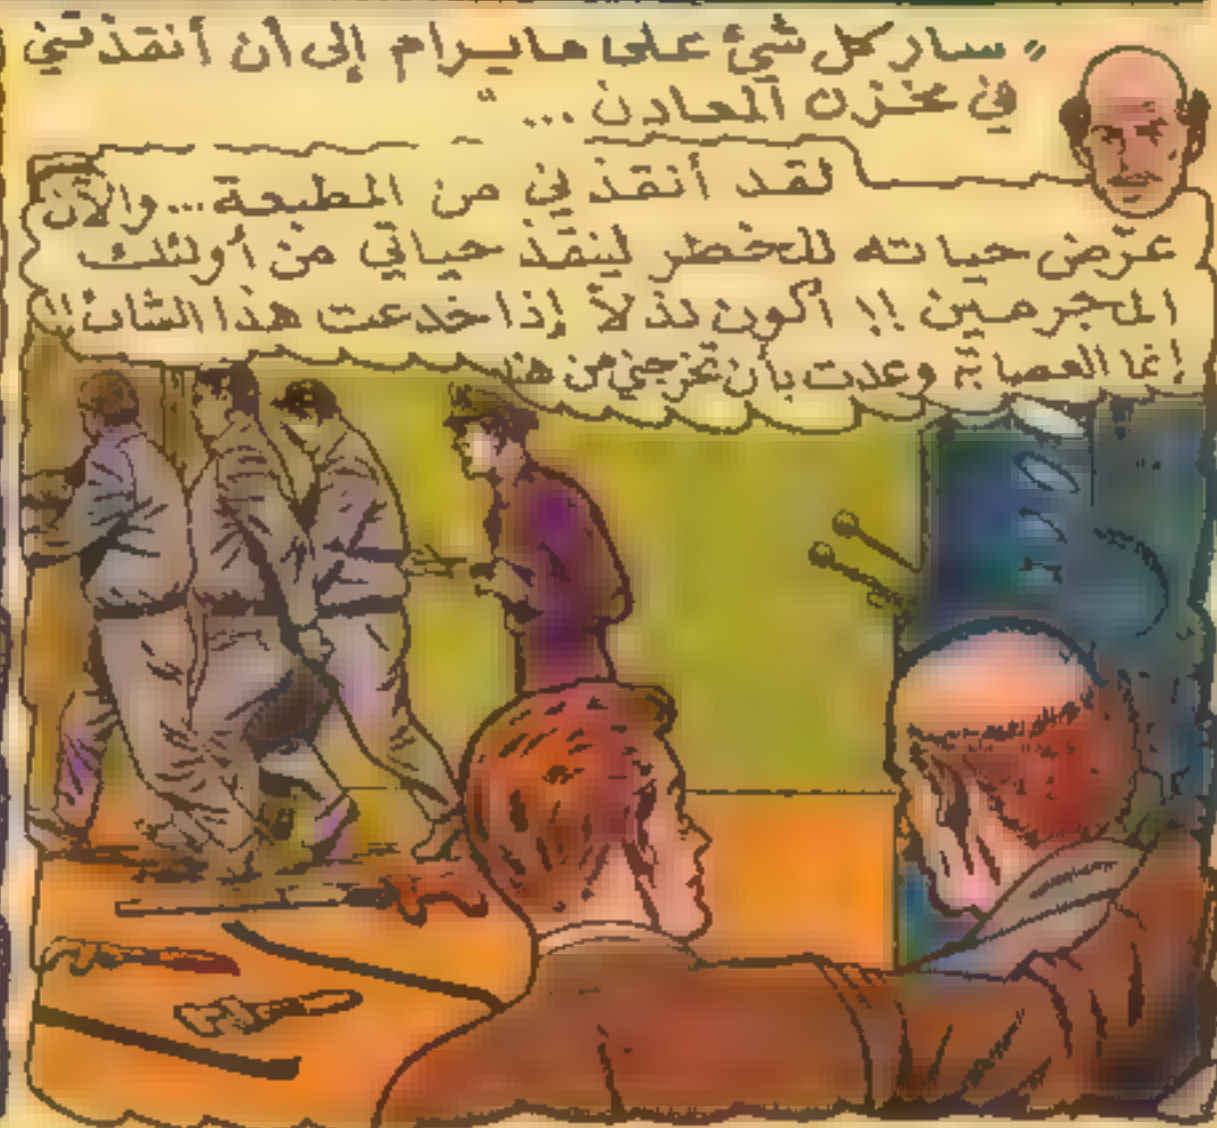 "سار كل شئ على مايرام إلى أن أنقذتني
في مخزن المعادن ..."
لقد أنقذني من المطبعة ... والآن
عرّض حياته للخطر لينقذ حياتي من أولئك
المجرمين !! أكون نذلاً إذا خدعت هذا الشاب !!
إنما العصابة وعدت بأن تخرجني من هنا